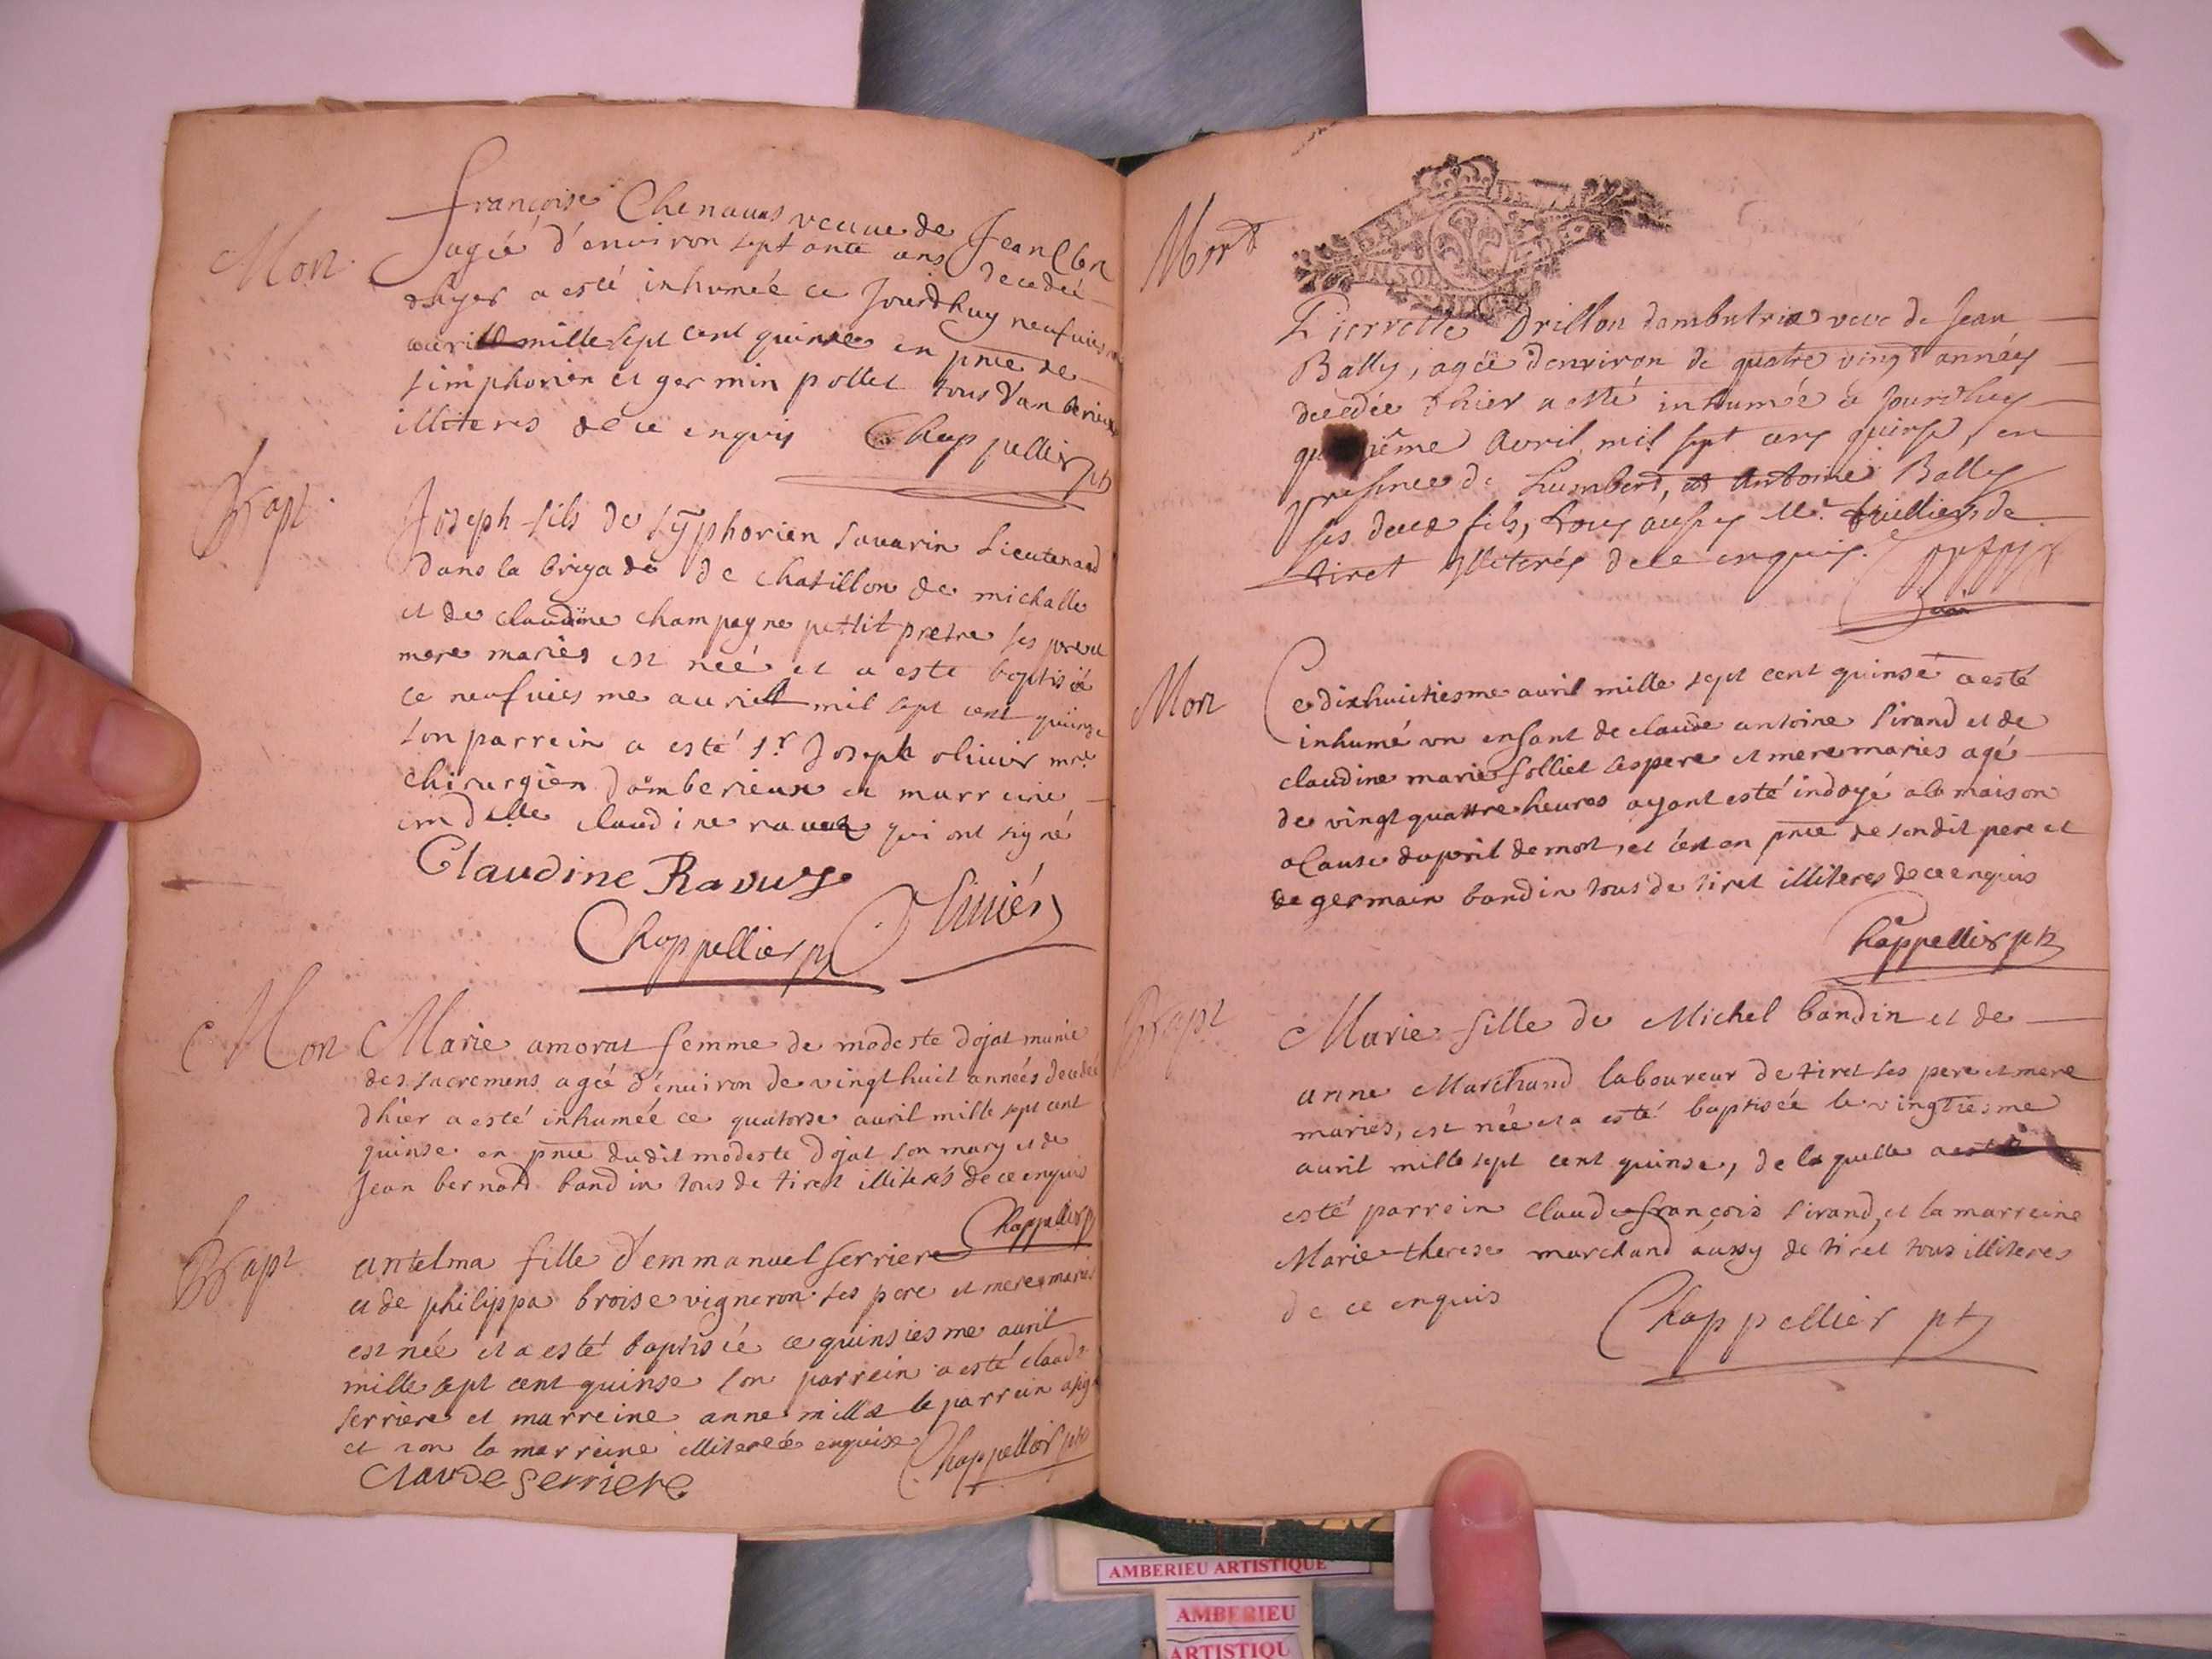 Mort
françoise Chenauas veuue de Jean
agéé d'enuiron septante ans decedéé
dhyer a esté inhuméé ce Jourdhuy neufuies
auril mille sept cent quinse en pnce de
simphorien et germin pollet tous d'anberieux
illiteres de ce enquis Chappellier ptr
Bapt
Joseph fils de syphorien sauarin Lieutenand
dans la brigade de chatillon de michalle
et de claudine champagne pettit pretre ses pere et
mere mariés est néé et a esté baptiséé
ce neufuiesme auril mil sept cent quinze
son parrein a esté sr Joseph oliuier mre
chirurgien d'amberieux et marreine
delle claudine rauuz qui ont signé
Claudine Ravuz
Chappellier ptr Oliuiér
Mort
Marie amorat femme de modeste dojat munie
des sacremens agéé d'enuiron de vingt huit annéés decedéé
dhier a esté inhuméé ce quatorse auril mille sept cent
quinse en pnce dudit modeste dojat son mary et de
Jean bernard bandin tous de tiret illiterés de ce enquis
Chappellier ptr
Bapt
antelma fille d'emmanuel serriere
et de philippa broise vigneron ses pere et mere mariés
est néé et a esté baptiséé ce quinsiesme auril
mille sept cent quinse son parrein a esté claude
serriere et marreine anne millet le parrein a signé
et non la marreine illiteréé enquise Chappellier ptr
Claude Serriere
Mort
Pierrette Drillon dambutrix veve de Jean
Bally, agéë d'environ de quatre vingt annéeś
decedée d'hier a esté inhumée ce Jourd'huy
qu ième Avril mil sept cens quinse, en
presence de humbert, et Antoine Bally
ses deux fils, tous aussy
tiret illiterés de ce enquis.
Mort
Ce dixhuitiesme auril mille sept cent quinse a esté
inhumé vn enfant de claude antoine sirand et de
claudine marie folliet ses pere et mere mariés agé
de vingt quattre heures ayant esté indoyé a la maison
a Cause du peril de mort, et c'est en pnce de sondit pere et
de germain bandin tous de tiret illiteres de ce enquis
Chappellier ptr
Bapt
Marie fille de Michel bandin et de
anne Marchand laboureur de tiret ses pere et mere
mariés, est néé et a esté baptiséé le vingtiesme
auril mille sept cent quinse, de laquelle a
esté parrein claude françois sirand, et la marreine
Marie therese marchand aussy de tiret tous illiteres
de ce enquis Chappellier ptr
AMBERIEU ARTISTIQUE
AMBERIEU
ARTISTIQU